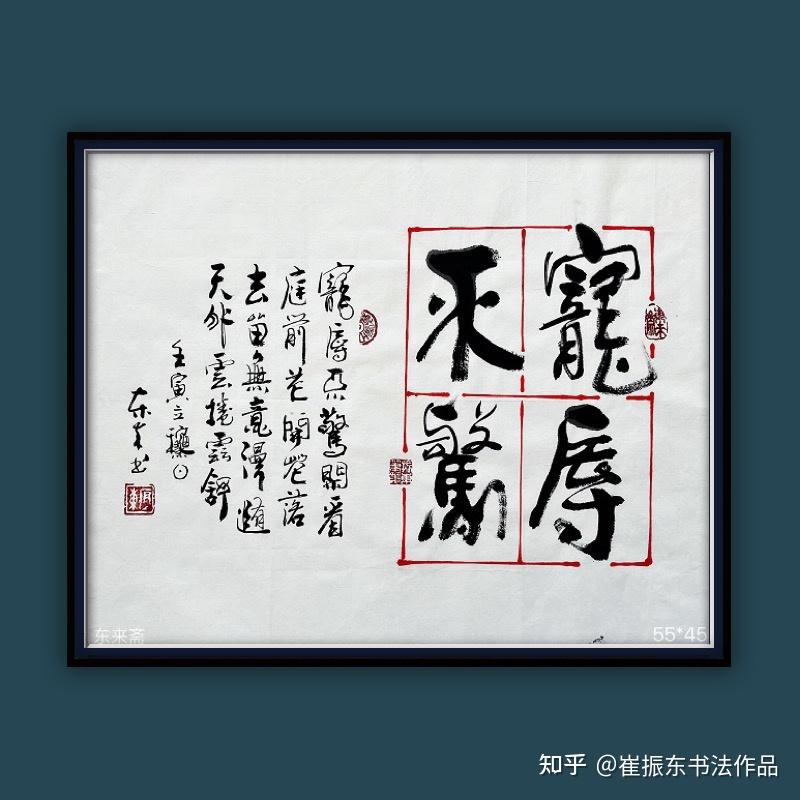 寵辱
不驚
寵辱不驚閑看
庭前花開花落
去留無意漫隨
天外雲捲雲舒
壬寅立龝日
东来书
东来斋
55*45
知乎 @崔振东书法作品